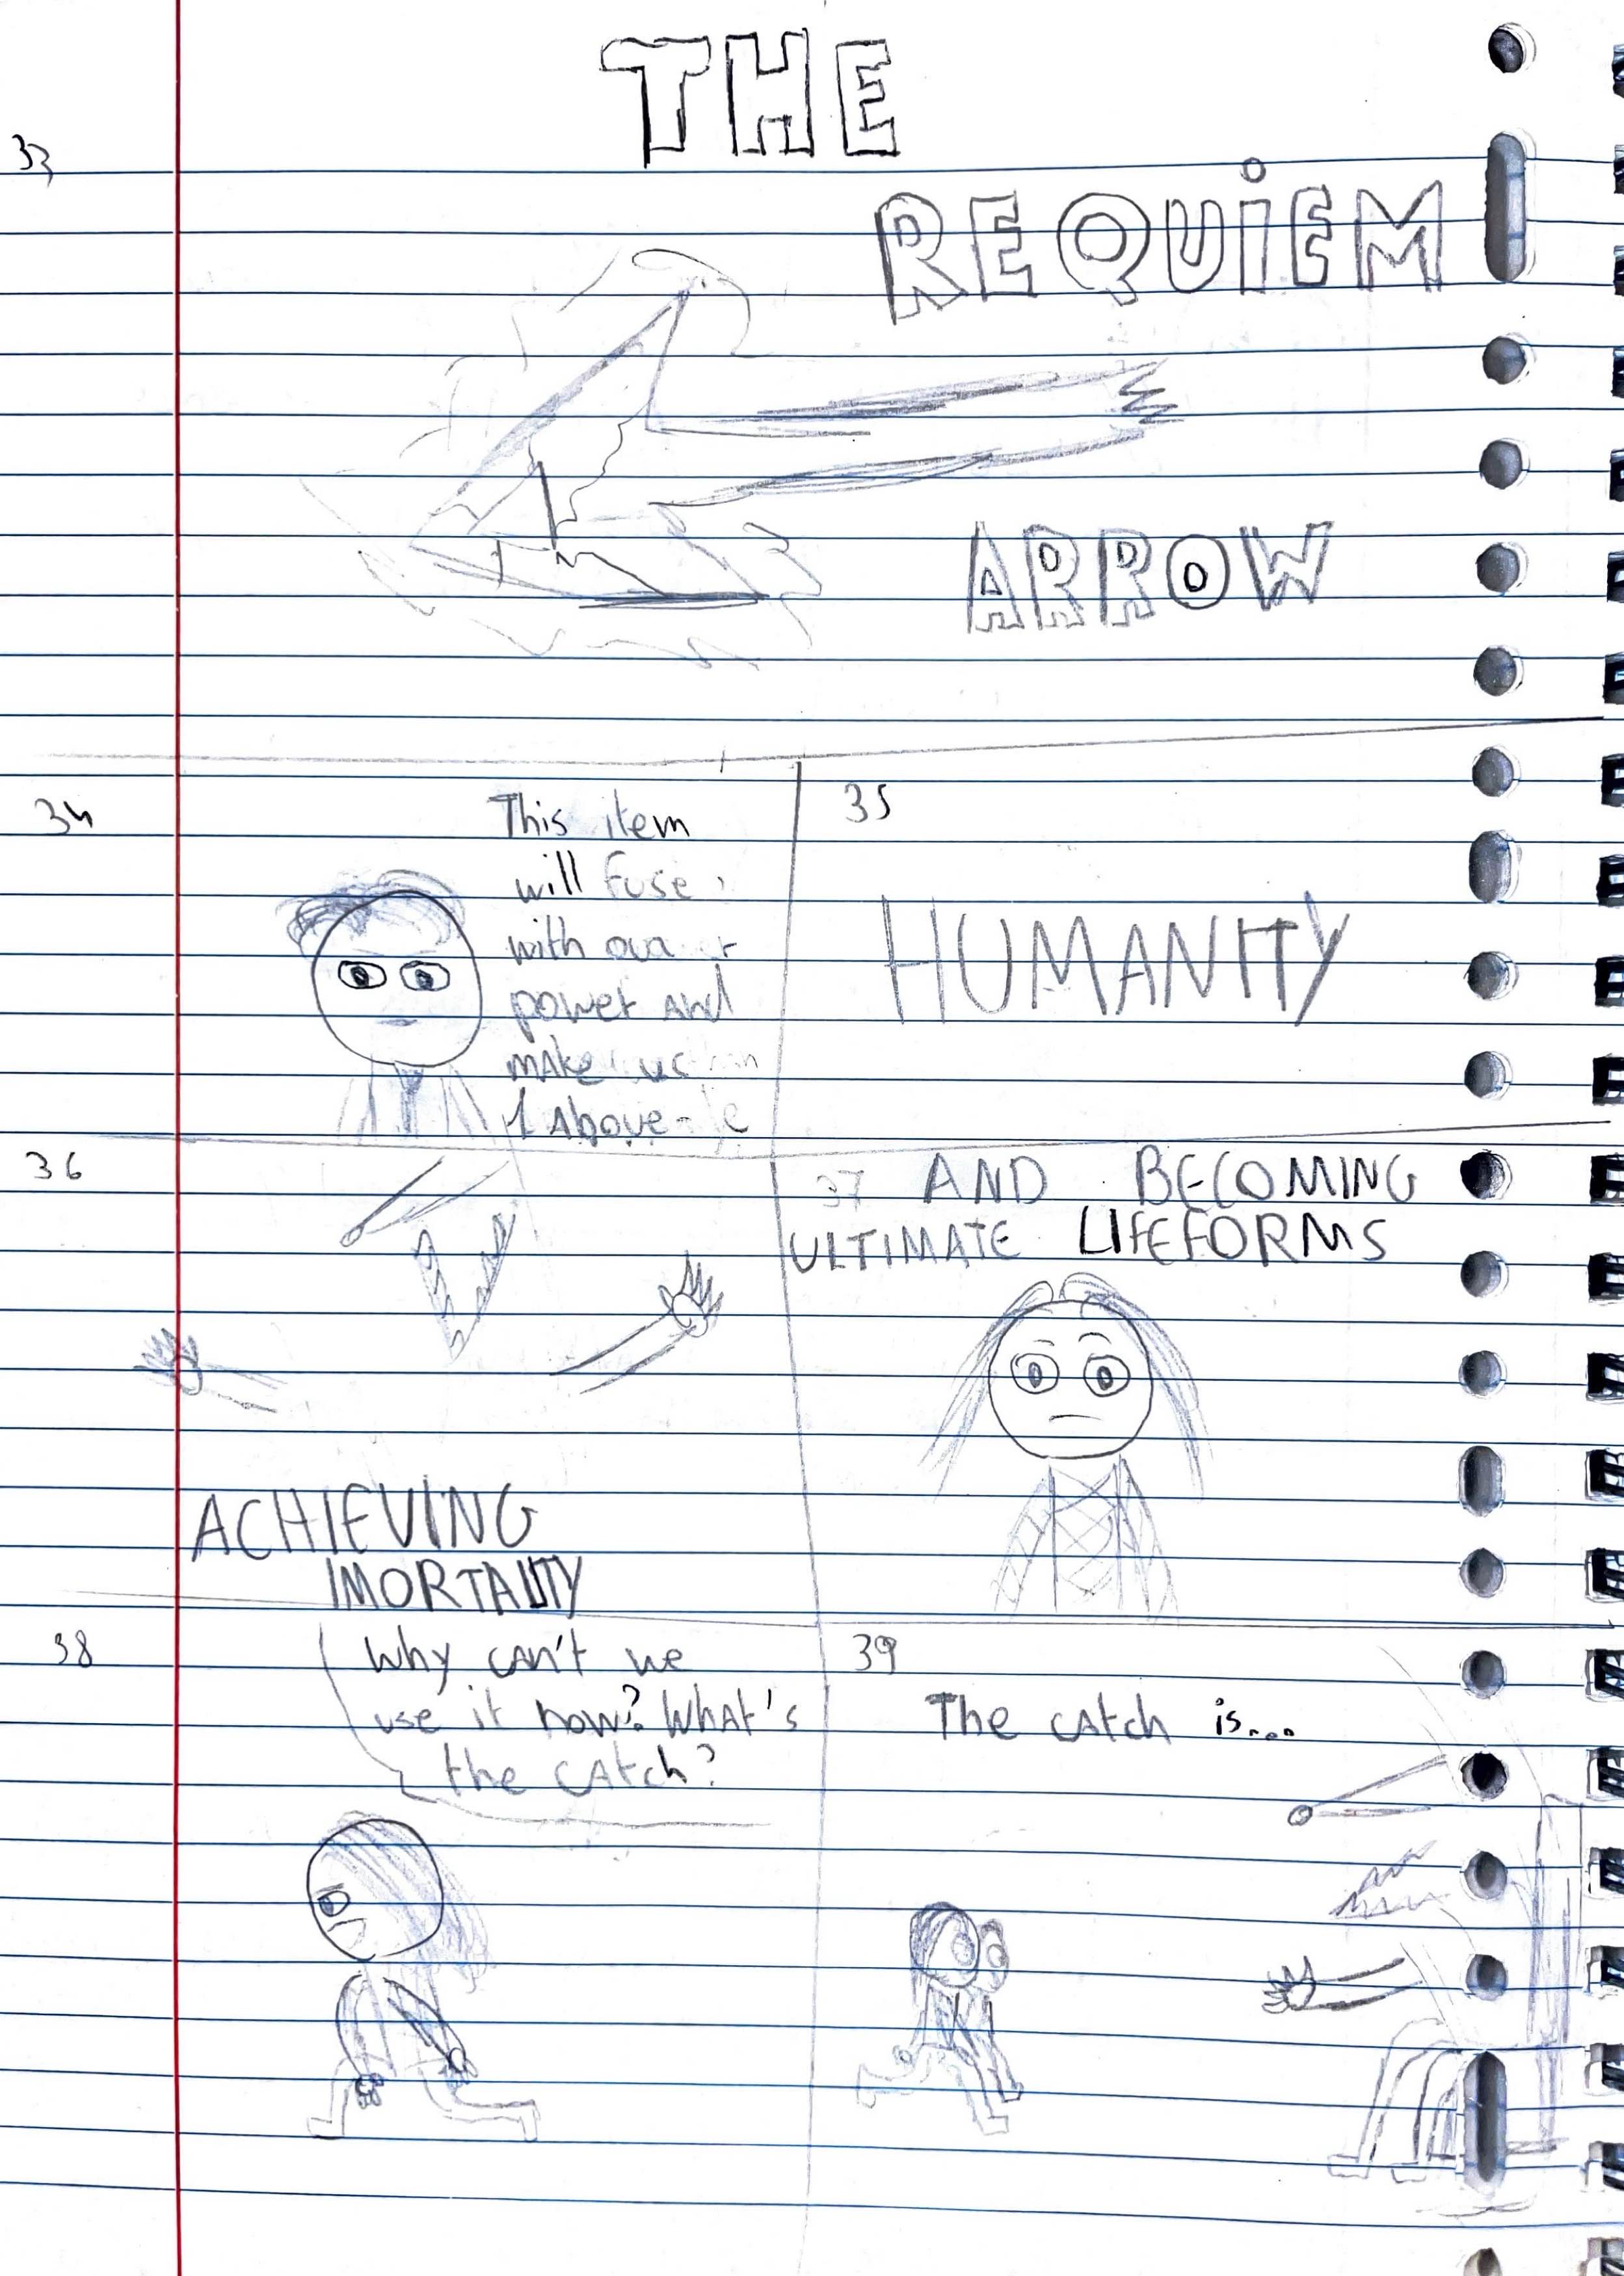 THE
33
REQUiEM
ARROW
34
This item
will fuse
with our
power and
make us
1 Above
35
HUMANITY
36
ACHIEVING
IMORTALITY
37 AND BECOMING
ULTIMATE LIFEFORMS
38
Why can't we
use it now? What's
the catch?
39
The catch is....